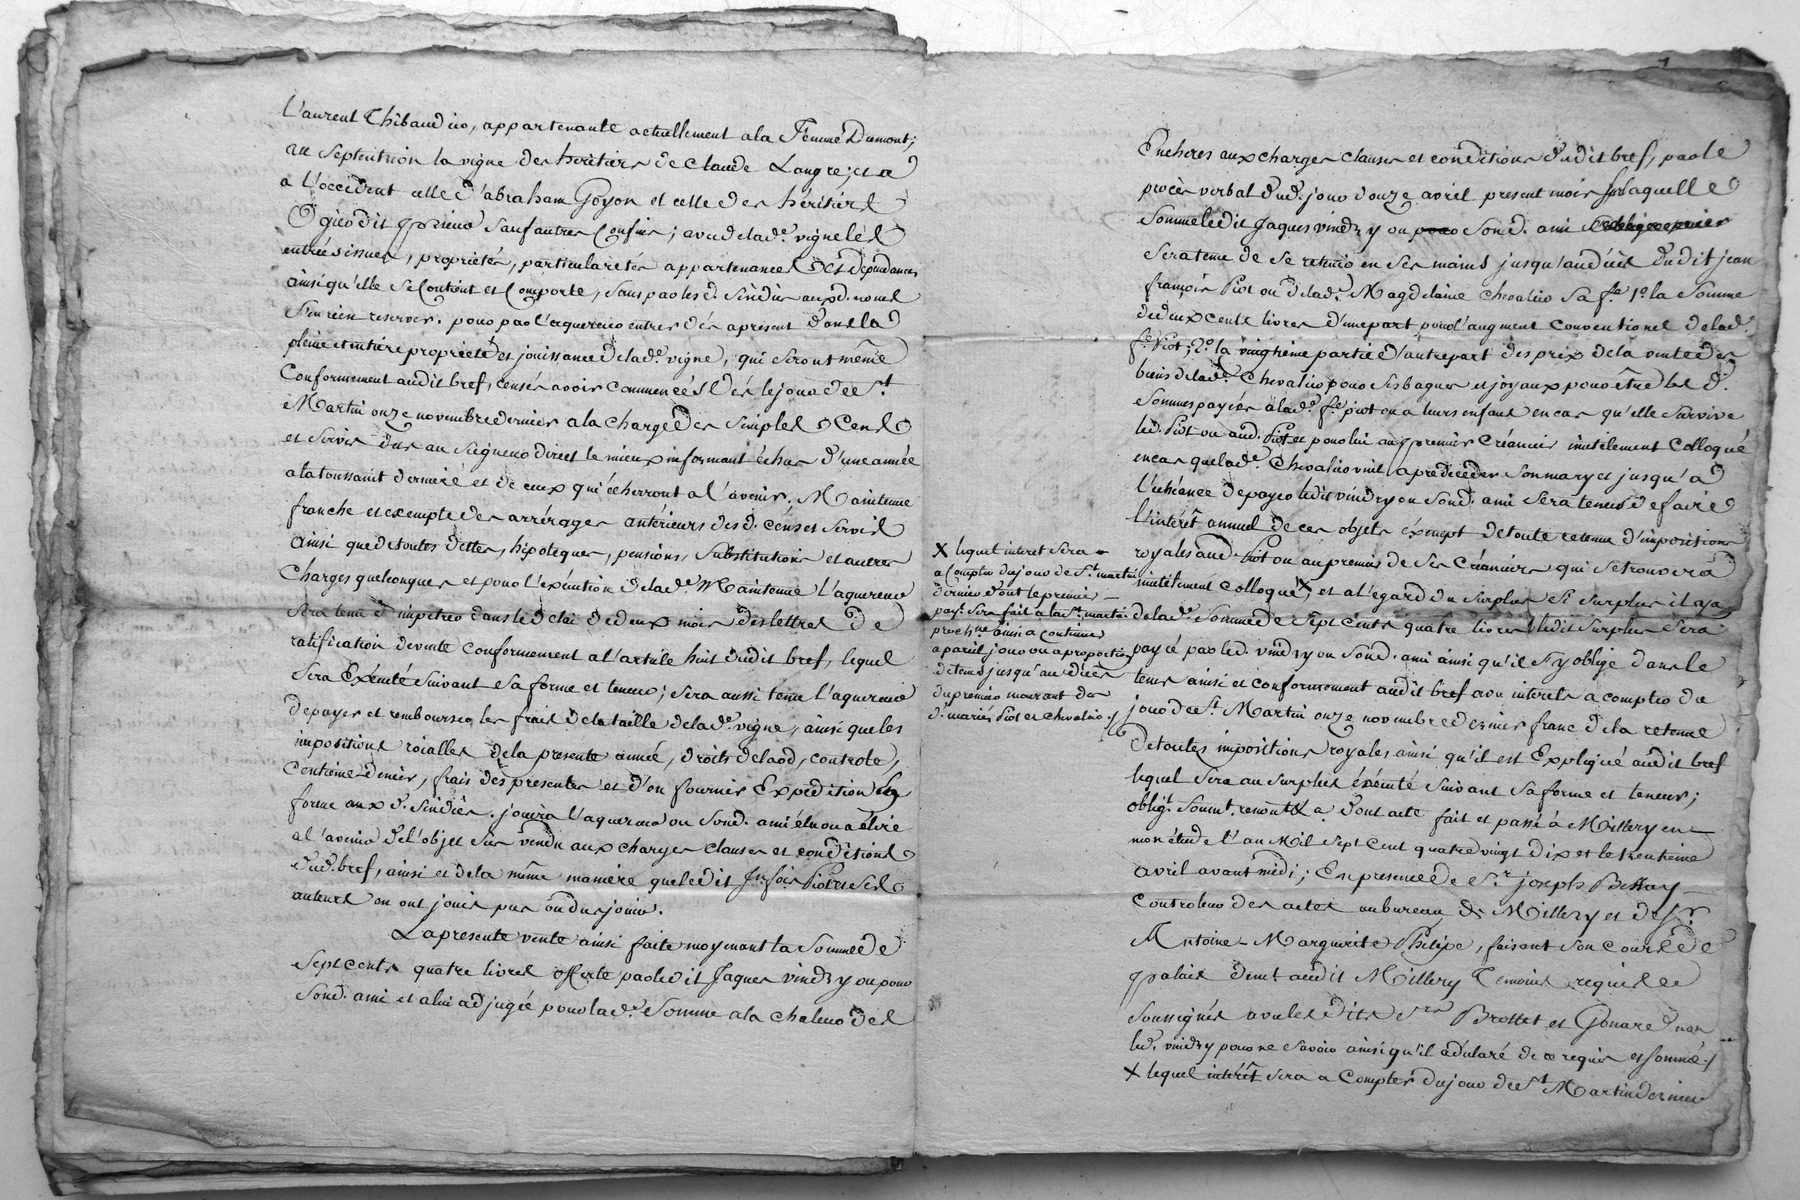 Laurent Thibaudier, appartenante actuellement a la Femme Dumont;
au septentrion la vigne des heritiers de Claude Langre; et a
a L'occident celle d'abraham Goyon et celle des héritiers
Ogier dit sauf autres Confins; avec de lad.e vigne les
entrées issues, proprietés, particularetés appartenances et dépendances
ainsi qu'elle se Contient et Comporte, sans par les d. sindics aux d. noms
s'en rien reserver. pour par l'aquereur entrer dés apresent dans la
pleine et entiere proprieté et jouissance de lad.e vigne, qui seront même
Conformement audit bref, censés avoir commencées dés le jour de St.
Martin onze novembre dernier a la charge des simples Cens
et servis dus au seigneur direct le mieux informant échus d'une année
a la toussaint derniere et de ceux qui écherront a l'avenir. Maintenue
franche et exempte des arrérages antérieurs des d. céns et servis
ainsi que de toutes dettes, hipoteques, pensions, substitutions et autres
Charges quelconques et pour l'exécution de lad.e Maintenue L'aquereur
sera tenu d'impetrer dans le délai de deux mois des lettres de
ratification de vente conformement a l'article huit dudit bref, lequel
sera Exécuté suivant sa forme et teneur; sera aussi tenu l'aquereur
de payer et rembourser les frais de la taille de lad.e vigne, ainsi que les
impositions roialles de la presente année, droits de laod, controle,
Centieme denier, frais des presentes et d'en fournir Expédition en
forme aux d. sindics. jouira l'aquereur ou sond. ami élu ou a élire
a l'avenir de l'objet sus vendu aux charges clauses et conditions
dud. bref, ainsi et de la même maniere que ledit Jn fois Piot et ses
auteurs en ont joüis pus ou dus joüir.
La presente vente ainsi faite moyenant la somme de
sept cents quatre livres offerte par ledit Jaques vindry ou pour
sond. ami et a lui adjugée pour lad.e somme a la chaleur des
Encheres aux charges clauses et conditions dudit bref, par le
procès verbal dud. jour d'onze avril present mois sur laquelle
somme ledit Jaques vindry ou sond. ami
sera tenu de se retenir en ses mains jusqu'au décés dudit jean
françois Piot ou de lad.e Magdelaine Chevalier sa fe. 1.o la somme
de deux cents livres d'une part, pour l'augment conventionel de lad.
fe. Piot; 2.o la vingtieme partie d'autre part des prix de la vente des
biens de lad.e Chevalier pour ses bagues et joyaux pour être les d.
sommes payées a lad.e fe. piot ou a leurs enfans en cas qu'elle survive
led. Piot ou aud. Piot et pour lui au premier créancier inutilement colloqué
en cas que lad.e Chevalier vint a prédécéder son mary et jusqu'a
l'échéance de payer ledit vindry ou sond. ami sera tenu de faire
l'intérêt annuel de ces objets éxempt de toute retenue d'impositions
royales aud. Piot ou au premier de ses créanciers qui se trouvera
inutilement colloqué X, et a l'egard du surplus si surplus il a
de lad.e somme de sept cents quatre livres ledit surplus sera
payé par led. vindry ou sond. ami ainsi qu'il s'y oblige dans le
tems ainsi et conformement audit bref avec interets a compter du
jour de St. Martin onze novembre dernier franc de la retenue
de toutes impositions royales ainsi qu'il est Expliqué audit bref
lequel sera au surplus éxécuté suivant sa forme et teneur;
oblig.t soumt. renont. & a dont acte fait et passé à Millery en
mon étude l'an Mil sept cent quatre vingt dix et le trentieme
avril avant midi; En presence de Sr. joseph Bessay
Controleur des actes au bureau de Millery et de Sr.
Antoine-Marguerite Philipe, faisant son cours de
palais demt. audit Millery Temoins requis
soussignés avec lesdits Srs. Brottet et Gonare non
led. vindry pour ne savoir ainsi qu'il a déclaré de ce requis et sommé./
X lequel intérêt sera a compter du jour de St. Martin dernier
X lequel interet sera
a Compter du jour de St. martin
dernier dont le premier
payt. sera fait a la St. martin
prochne. ainsi a continuer
a pareil jour ou a proportion
de tems jusqu'au décès
du premier mourant des
d. mariés Piot et Chevalier./